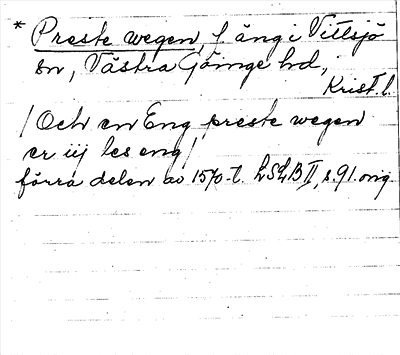 * Preste wegen, f. äng i Vittsjö
sn, Västra Göinge hd,
Krist. l.
/ Och en Eng preste wegen
er iij les eng /
förra delen av 1570-t. LSLB II, s. 91. orig.